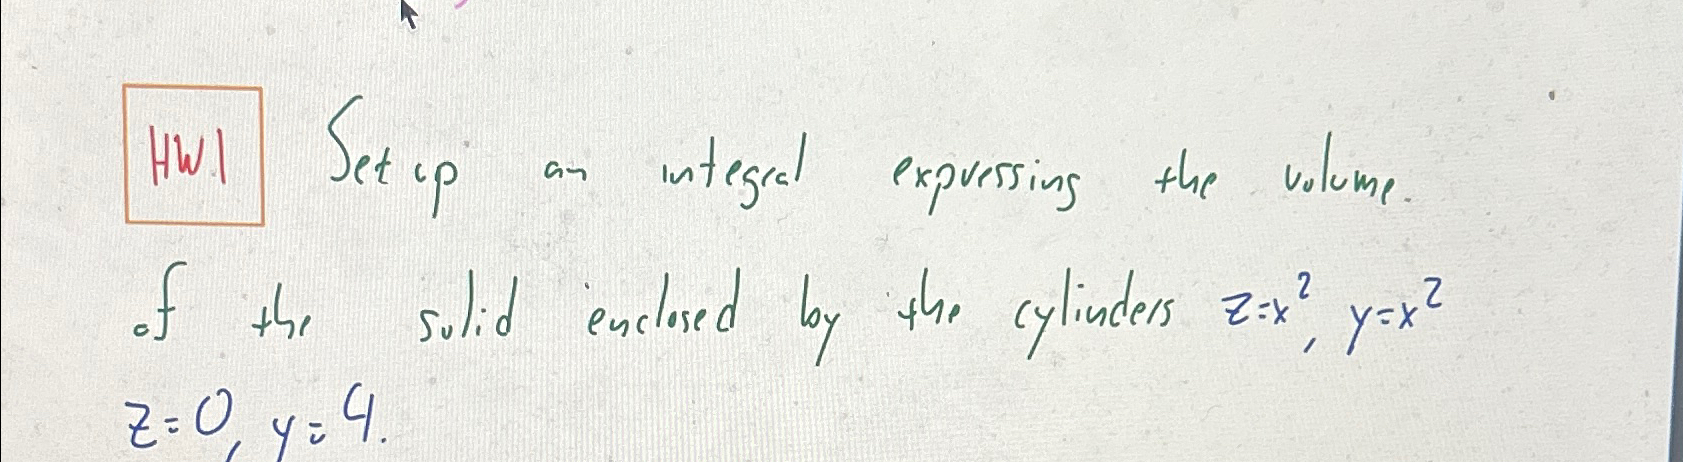 HW1 Set up an integral expressing the volume.
of the solid enclosed by the cylinders z=x², y=x²
z=0, y=4.